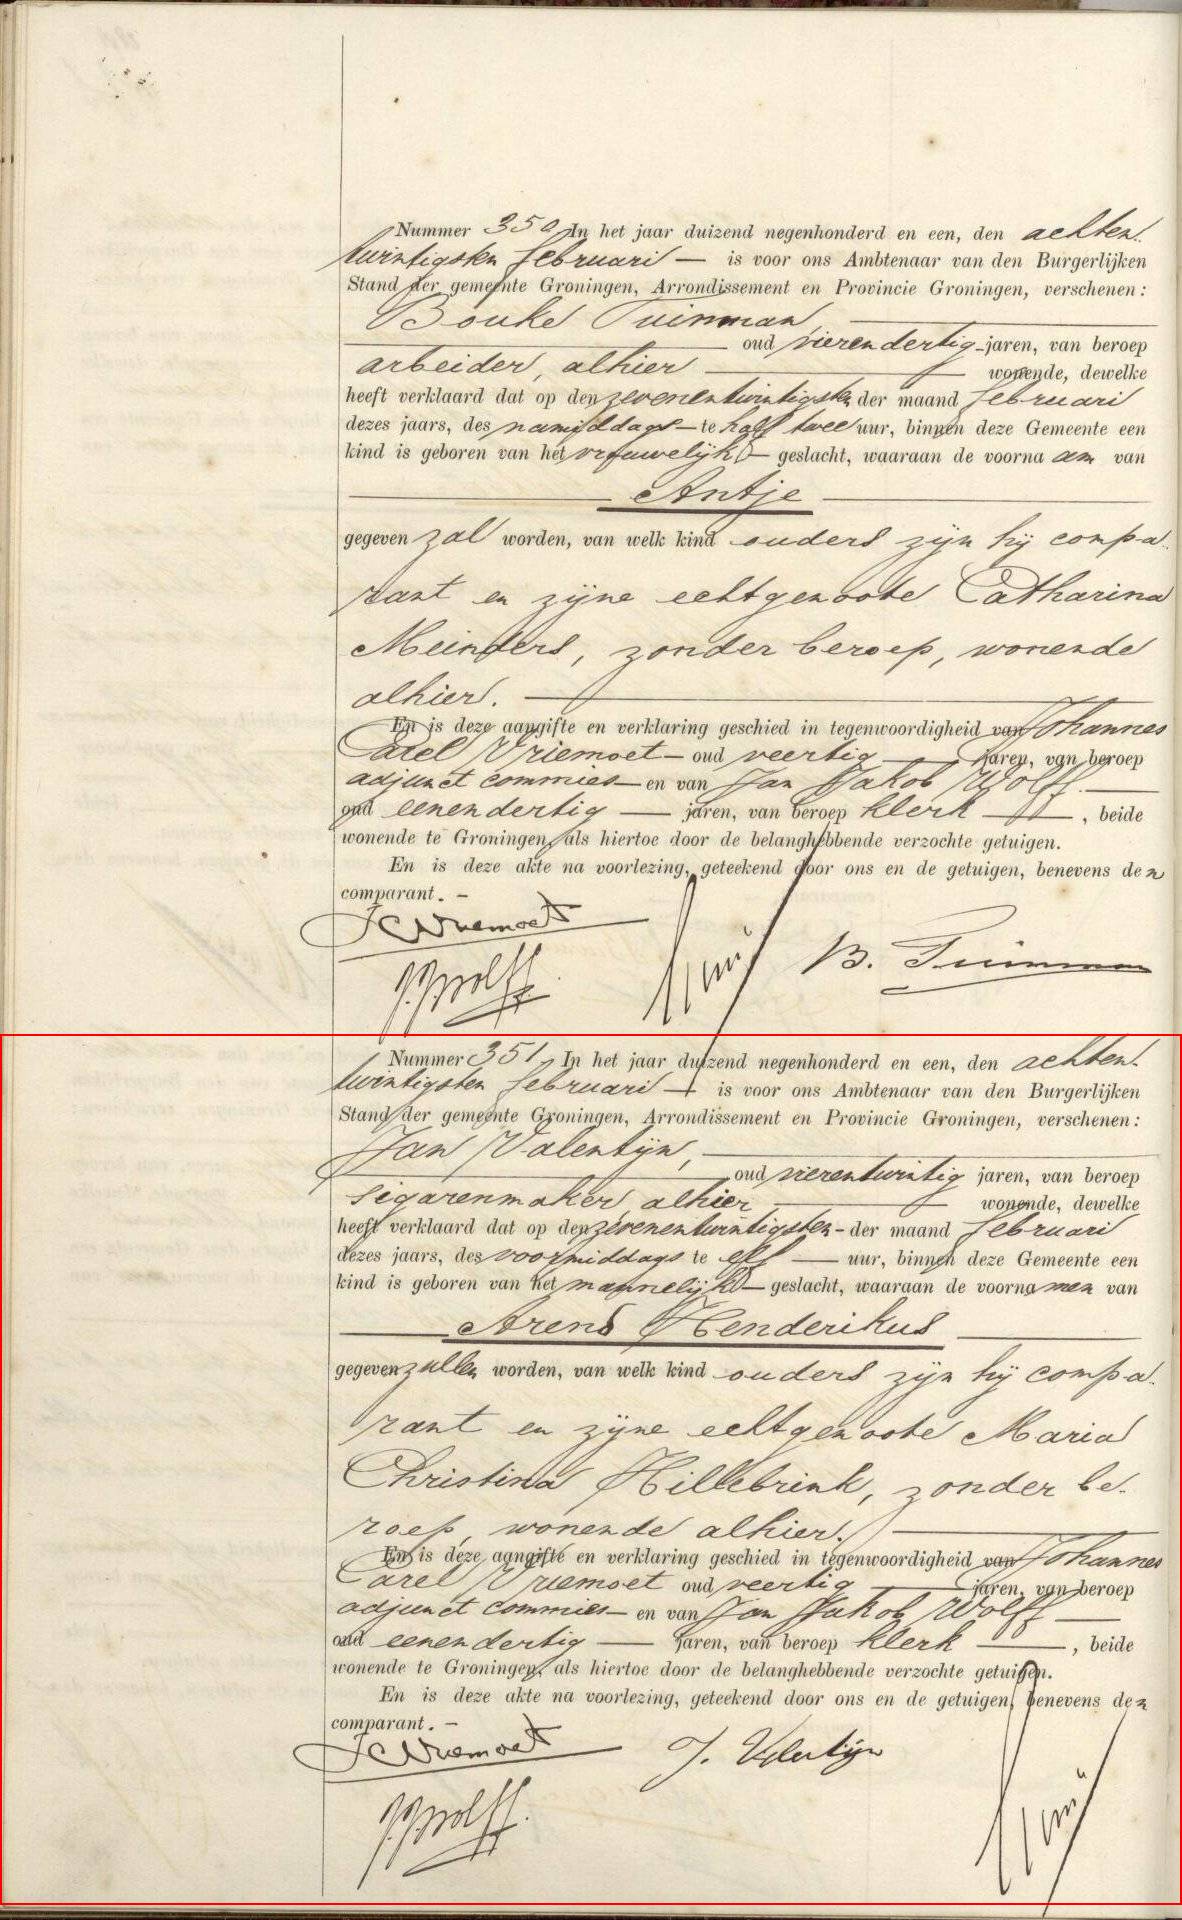 Nummer 350, In het jaar duizend negenhonderd en een, den achten-
twintigsten februari — is voor ons Ambtenaar van den Burgerlijken
Stand der gemeente Groningen, Arrondissement en Provincie Groningen, verschenen:
Bouke Tuinman,
oud vierendertig jaren, van beroep
arbeider, alhier — wonende, dewelke
heeft verklaard dat op den zevenentwintigsten der maand februari
dezes jaars, des namiddags – te half twee uur, binnen deze Gemeente een
kind is geboren van het vrouwelijk – geslacht, waaraan de voornaam van
Antje
gegeven zal worden, van welk kind ouders zijn hij compa-
rant en zijne echtgenoote Catharina
Meinders, zonder beroep, wonende
alhier. —
En is deze aangifte en verklaring geschied in tegenwoordigheid van Johannes
Carel Vriemoet – oud veertig — jaren, van beroep
adjunct commies – en van Jan Jakob Wolff. —
oud eenendertig — jaren, van beroep klerk —, beide
wonende te Groningen, als hiertoe door de belanghebbende verzochte getuigen.
En is deze akte na voorlezing, geteekend door ons en de getuigen, benevens den
comparant. –
JCVriemoet
B. Tuinman
J.J. Wolff
Nummer 351, In het jaar duizend negenhonderd en een, den achten-
twintigsten februari — is voor ons Ambtenaar van den Burgerlijken
Stand der gemeente Groningen, Arrondissement en Provincie Groningen, verschenen:
Jan Valentijn, —
oud vierentwintig jaren, van beroep
sigarenmaker alhier — wonende, dewelke
heeft verklaard dat op den zevenentwintigsten – der maand februari
dezes jaars, des voormiddags te elf — uur, binnen deze Gemeente een
kind is geboren van het mannelijk – geslacht, waaraan de voornamen van
Arend Henderikus
gegeven zullen worden, van welk kind ouders zijn hij compa-
rant en zijne echtgenoote Maria
Christina Hillebrink, zonder be-
roep, wonende alhier. —
En is deze aangifte en verklaring geschied in tegenwoordigheid van Johannes
Carel Vriemoet oud veertig — jaren, van beroep
adjunct commies – en van Jan Jakob Wolff —
oud eenendertig — jaren, van beroep klerk —, beide
wonende te Groningen, als hiertoe door de belanghebbende verzochte getuigen.
En is deze akte na voorlezing, geteekend door ons en de getuigen, benevens den
comparant. –
JCVriemoet
J. Valentijn
J.J. Wolff.